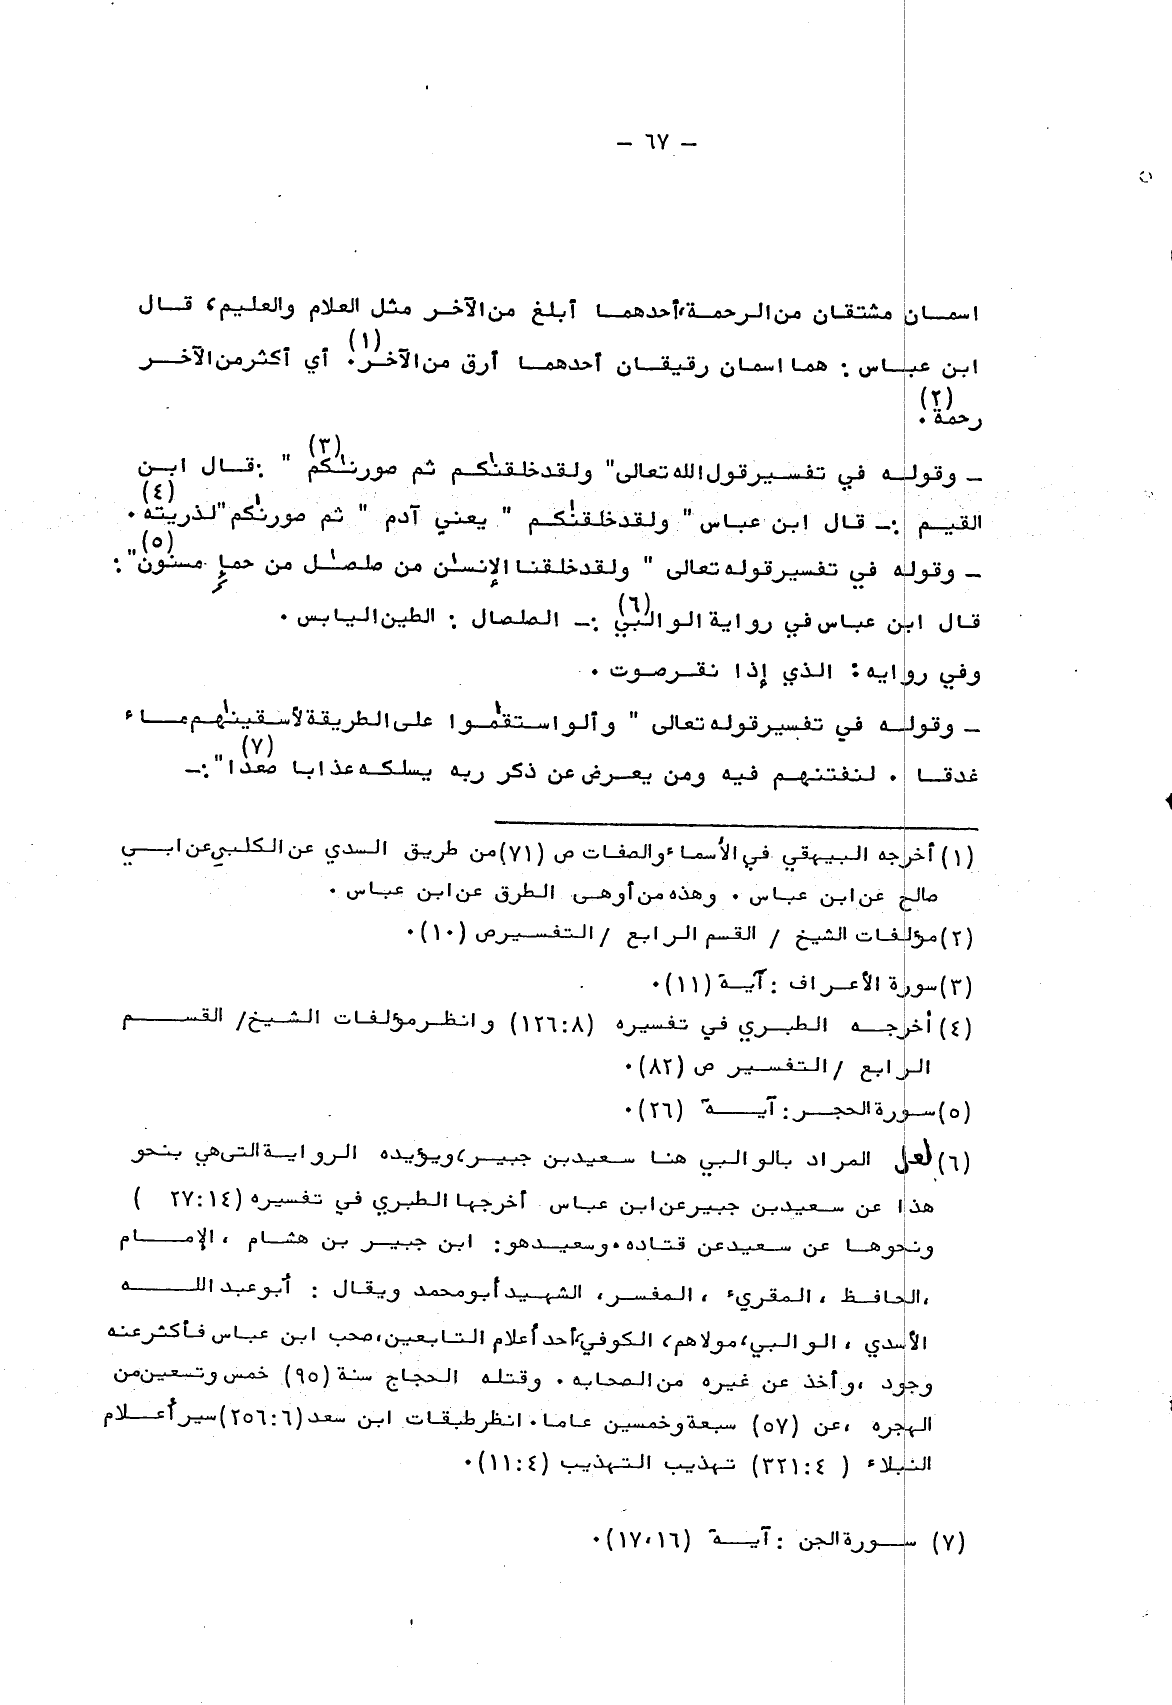 – ٦٧ –
اسمان مشتقان من الرحمة، أحدهما أبلغ من الآخر مثل العلام والعليم، قال
ابن عباس : هما اسمان رقيقان أحدهما أرق من الآخر(١). أي أكثر من الآخر
رحمة(٢).
– وقوله في تفسير قول الله تعالى" ولقد خلقنٰكم ثم صورنٰكم(٣) " :قال ابن
القيم :– قال ابن عباس" ولقد خلقنٰكم " يعني آدم " ثم صورنٰكم"لذريته(٤).
– وقوله في تفسير قوله تعالى " ولقد خلقنا الإنسٰن من صلصٰل من حمإٍ مسنون(٥)":
قال ابن عباس في رواية الوالبي(٦) :– الصلصال : الطين اليابس .
وفي روايه : الذي إذا نقر صوت .
– وقوله في تفسير قوله تعالى " وألو استقٰموا على الطريقة لأسقينٰهم ماء
غدقا . لنفتنهم فيه ومن يعرض عن ذكر ربه يسلكه عذابا صعدا(٧)":–
(١) أخرجه البيهقي في الأسماء والصفات ص (٧١)من طريق السدي عن الكلبي عن ابي
صالح عن ابن عباس . وهذه من أوهى الطرق عن ابن عباس .
(٢)مؤلفات الشيخ / القسم الرابع /التفسير ص (١٠).
(٣)سورة الأعراف :آية (١١).
(٤) أخرجه الطبري في تفسيره (١٢٦:٨) وانظر مؤلفات الشيخ/ القسم
الرابع /التفسير ص (٨٢).
(٥)سورة الحجر : آية (٢٦).
(٦) لعل المراد بالوالبي هنا سعيد بن جبير، ويؤيده الرواية التي هي بنحو
هذا عن سعيد بن جبير عن ابن عباس أخرجها الطبري في تفسيره (٢٧:١٤ )
ونحوها عن سعيد عن قتاده . وسعيد هو : ابن جبير بن هشام ، الإمام
،الحافظ ، المقريء ، المفسر، الشهيد أبو محمد ويقال : أبو عبد الله
الأسدي ، الوالبي، مولاهم، الكوفي، أحد أعلام التابعين، صحب ابن عباس فأكثر عنه
وجود ،وأخذ عن غيره من الصحابه . وقتله الحجاج سنة (٩٥) خمس وتسعين من
الهجره ،عن (٥٧) سبعة وخمسين عاما . انظر طبقات ابن سعد (٢٥٦:٦)سير أعلام
النبلاء ( ٣٢١:٤) تهذيب التهذيب (١١:٤).
(٧) سورة الجن : آية (١٦،١٧).